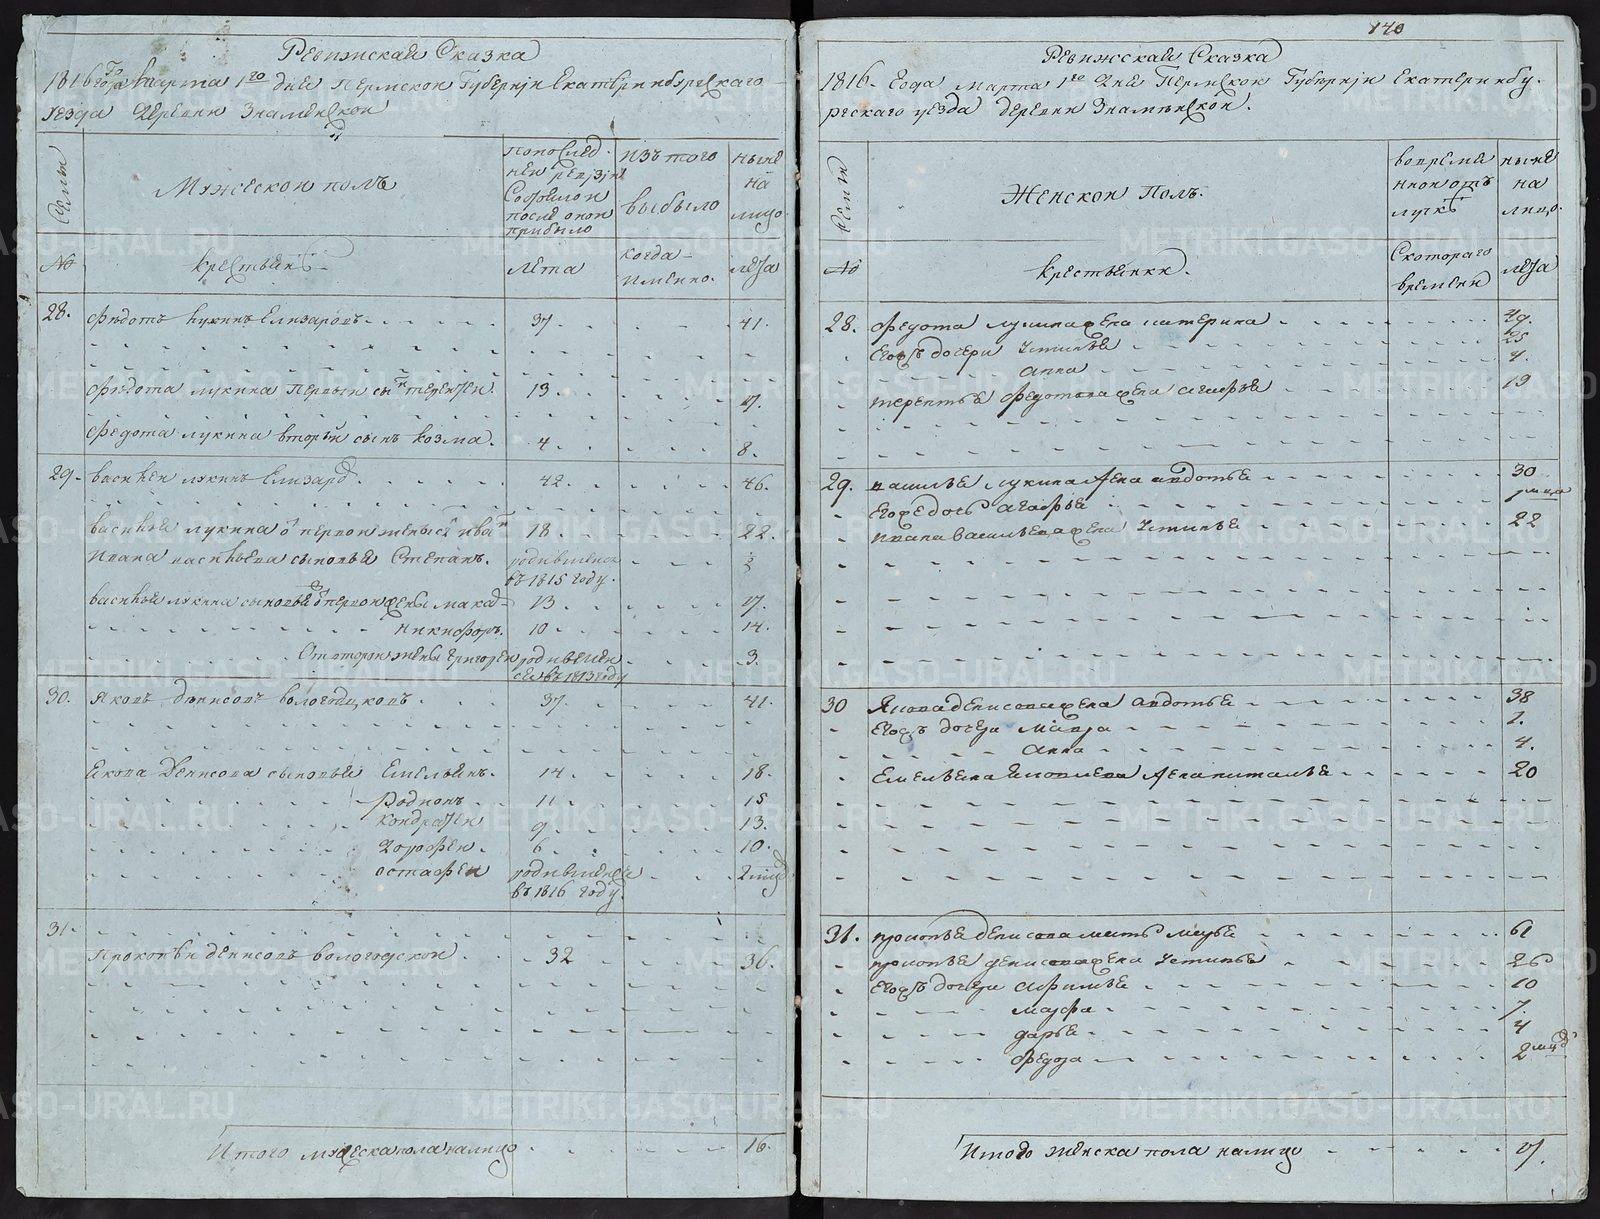 Ревижская Сказка
1816го года марта 1го дня Пермской Губернии Екатеринбургского
уезда Деревни Знаменской
Семьи
Мужеской полъ
По последней ревизии
Состояло и
после оной
прибыло
Изъ того
выбыло
Ныне
на
лицо
№
Крестьянъ
лета
когда
именно.
лета
28. Федотъ Лукинъ Елизаровъ 37. 41.
Федота Лукина первой сынъ Терентей 13. 17.
Федота Лукина вторый сынъ Козма. 4. 8.
29. Василей Лукинъ Елизаров 42. 46.
Василья Лукина о первой жены сынъ Иван 18. 22.
Ивана Васильева сыновья Степанъ. родившейся
въ 1815 году.
Василья Лукина сыновья о первой жены Макар 13. 17.
Никифоръ. 10. 14.
От второй жены Григорей родившей 3.
ся въ 1813 году
30. Яковъ Денисовъ Вологодцковъ 37. 41.
Якова Денисова сыновья Емельянъ. 14. 18.
Родионъ 11. 15
Кондратей 9. 13.
Дорофей. 6. 10.
Остафей родившейся 2 мцов
въ 1816 году.
31.
Прокопей Денисовъ Вологодской 32 36.
Итого мужеска пола налицо 16.
140
Ревижская Сказка
1816. Года марта 1го Дня Пермской Губернии Екатеринбу-
ргскаго уезда деревни Знаменской.
Семьи
Женской Полъ.
во время
ной отъ
лучкѣ
ныне
на
лицо.
№
Крестьянки.
Скотораго
времени
лета
28. Федота Лукина жена Катерина 49.
Егожъ дочери Устинья 25
Анна 4.
Терентья Федотова жена Агафья 19
29. Василья Лукина жена Авдотья 30
Его же дочь Агафья 1 мца
Ивана Васильева жена Устинья 22
30 Якова Денисова жена Авдотья 38
Егожъ дочери Мавра 7.
Анна 4.
Емельяна Яковлева жена Наталья 20
31. Прокопья Денисова мать Марья 61
Прокопья Денисова жена Устинья 26
Егожъ дочери Афимья 10
Марфа 7.
Дарья 4
Федора 2 мцов
Итого женска пола налицо 17.
METRIKI.GASO-URAL.RU